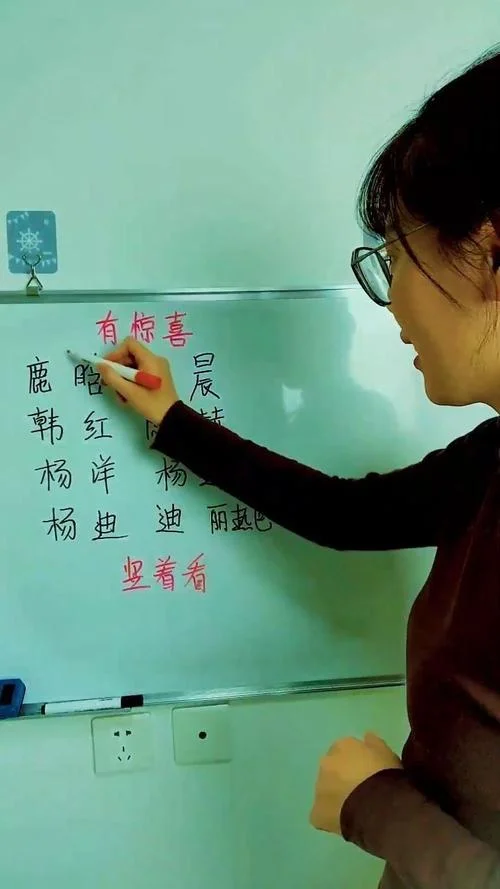 有惊喜
鹿晗 晨
韩红
杨洋 杨
杨迪 迪丽热巴
竖着看